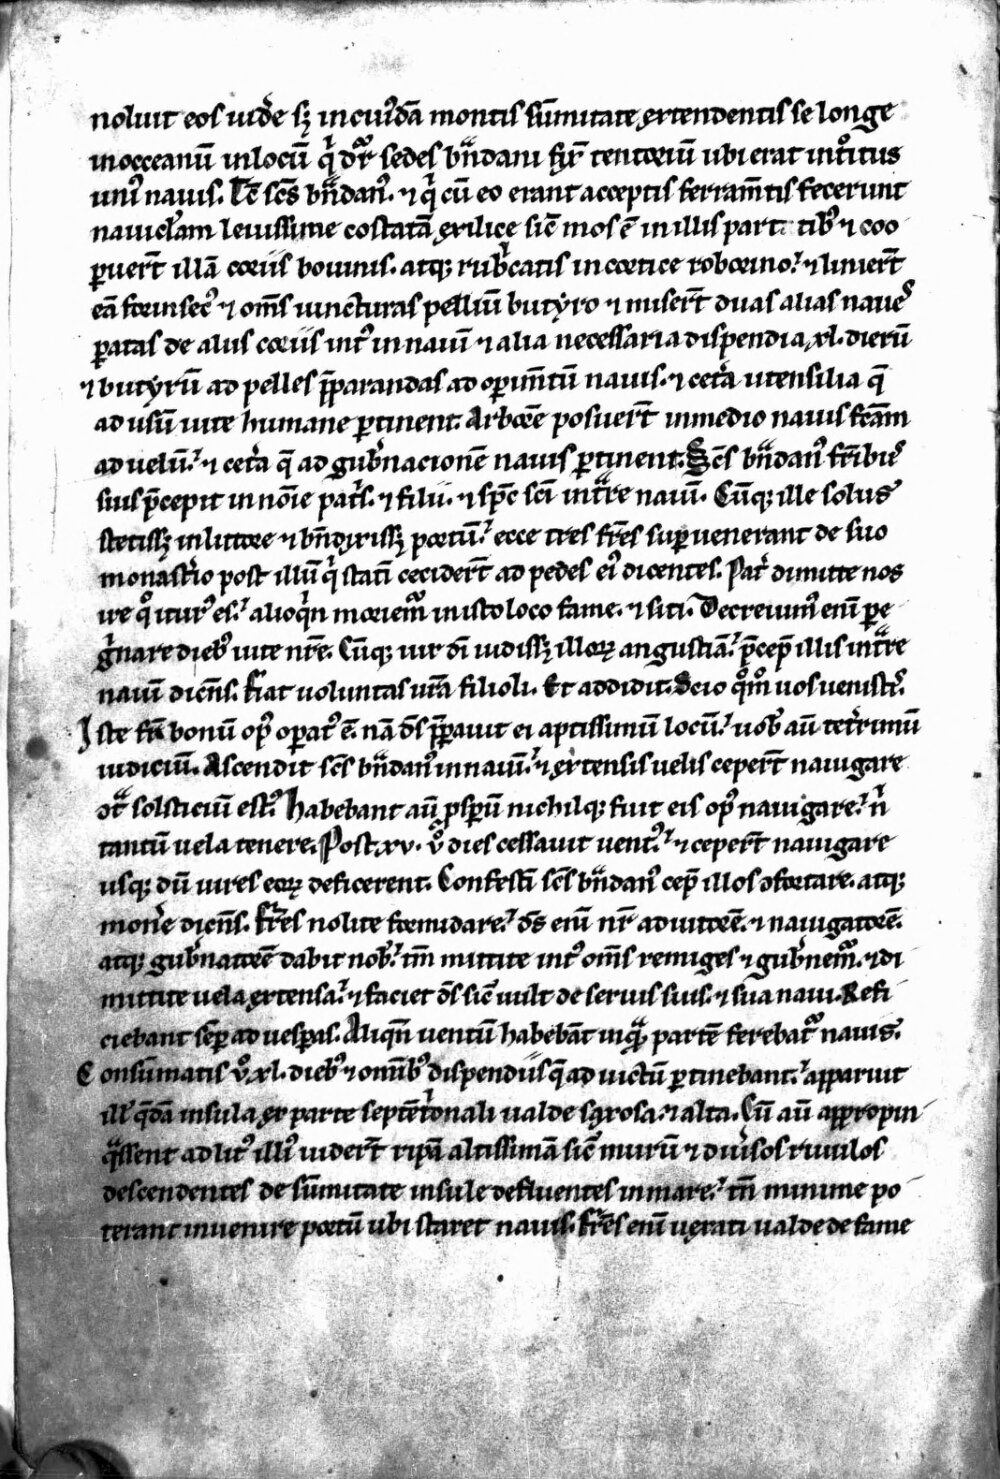 noluit eos uid̾e sꝫ in cuiꝰdā montis sūmitate extendentis se longe
in occeanū in locū qͥ dr̄ sedes bͣndani fix̄ tentoriū ubi erat intͦitus
uniꝰ nauis. Tc̄ sc̄s bͣndanꝰ. ⁊ qͥ cū eo erant acceptis ferram̄tis fecerunt
nauicl̄am leuissime costatā ex ilice sic̄ mos ē in illis part tibꝰ ⁊ coo
ꝑuert̄ illā coriis bouinis. atqꝫ rubͥcatis in cortice roborinoꝰ. ⁊ liniert̄
eā forinsecꝰ ⁊ om̄s iuncturas pelliū butyro ⁊ misert̄ duas alias nauẽ
ꝑatas de aliis coriis intͣ in nauī ⁊ alia necessaria dispendia .xl. dierū
⁊ butyrū ad pelles p̄parandas ad oꝑim̄tū nauis. ⁊ cet̾a utensilia q̄
ad usū uite humane ꝑtinent. Arborē posuert̄ in medio nauis fcām
ad uelū. ⁊ cet̾a q̄ ad gub̾nacionē nauis ꝑtinent. Sc̄s bͣndanꝰ fr̄ibꝰ
suis p̄cepit in noīe patͥs. ⁊ filii. ⁊ sp̄c sc̄i intͣre nauī. Cūqꝫ ille solus
stetissꝫ in littore ⁊ bn̄dixissꝫ portū. ecce tres fr̄es suꝑuenerant de suo
monast̾io post illū qͥ statī cecidert̄ ad pedes eiꝰ dicentes. Pat̾ dimitte nos
ire qͦ iturꝰ es. alioqͥn moriemͬ in isto loco fame. ⁊ siti. Decreuimꝰ enī ꝑe
gͥnare diebꝰ uite nr̄e. Cūqꝫ uir dī uidissꝫ illoꝝ angustiā. p̄cep̄ illis intͣre
nauī dicēs. Fiat uoluntas ur̄a filioli. Et addidit. Scio qͦmͦ uos uenistꝭ.
Iste fr̄ bonū opꝰ oꝑatꝰ ē. nā ds̄ p̄parauit ei aptissimū locū. uob̾ aū tet̾rimū
iudiciū. Ascendit sc̄s bͣndanꝰ in nauī. ⁊ extensis uelis cepert̄ nauigare
ꝯtͣ solsticiū estꝰ. Habebant aū ꝓsꝑū nichilqꝫ fuit eis opꝰ nauigare. n̄
tantū uela tenere. Post .xv. uͦ dies cessauit uentꝰ. ⁊ cepert̄ nauigare
usqꝫ dū uires eoꝝ deficerent. Confestī sc̄s bͣndanꝰ cep̄ illos ꝯfortare. atqꝫ
mon̾e dicēs. Fr̄es nolite formidare. ds̄ enī nr̄ adiutorē. ⁊ nauigatorē.
atqꝫ gub̾natorē dabit nob̾. tm̄ mittite intꝰ om̄s remiges ⁊ gub̾nemͦ. ⁊ di
mittite uela extensa. ⁊ faciet ds̄ sic̄ uult de seruis suis. ⁊ sua naui. Refi
ciebant seꝑ ad uesꝑas. Aliqn̄ uentū habebāt in qͣ partē ferebatͬ nauis.
Consūmatis uͦ .xl. diebꝰ ⁊ omībꝰ dispendiis q̄ ad uictū ꝑtinebant. apparuit
ill̾ q̄dā insula ex parte septēt̾onali ualde saxosa. ⁊ alta. Cū aū appropin
qͣssent ad litꝰ illiꝰ uidert̄ ripā altissimā sic̄ murū ⁊ diu̾sos riuulos
descendentes de sūmitate insule defluentes in mare. tn̄ minime po
terant inuenire portū ubi staret nauis. Fr̄es enī uexati ualde de fame